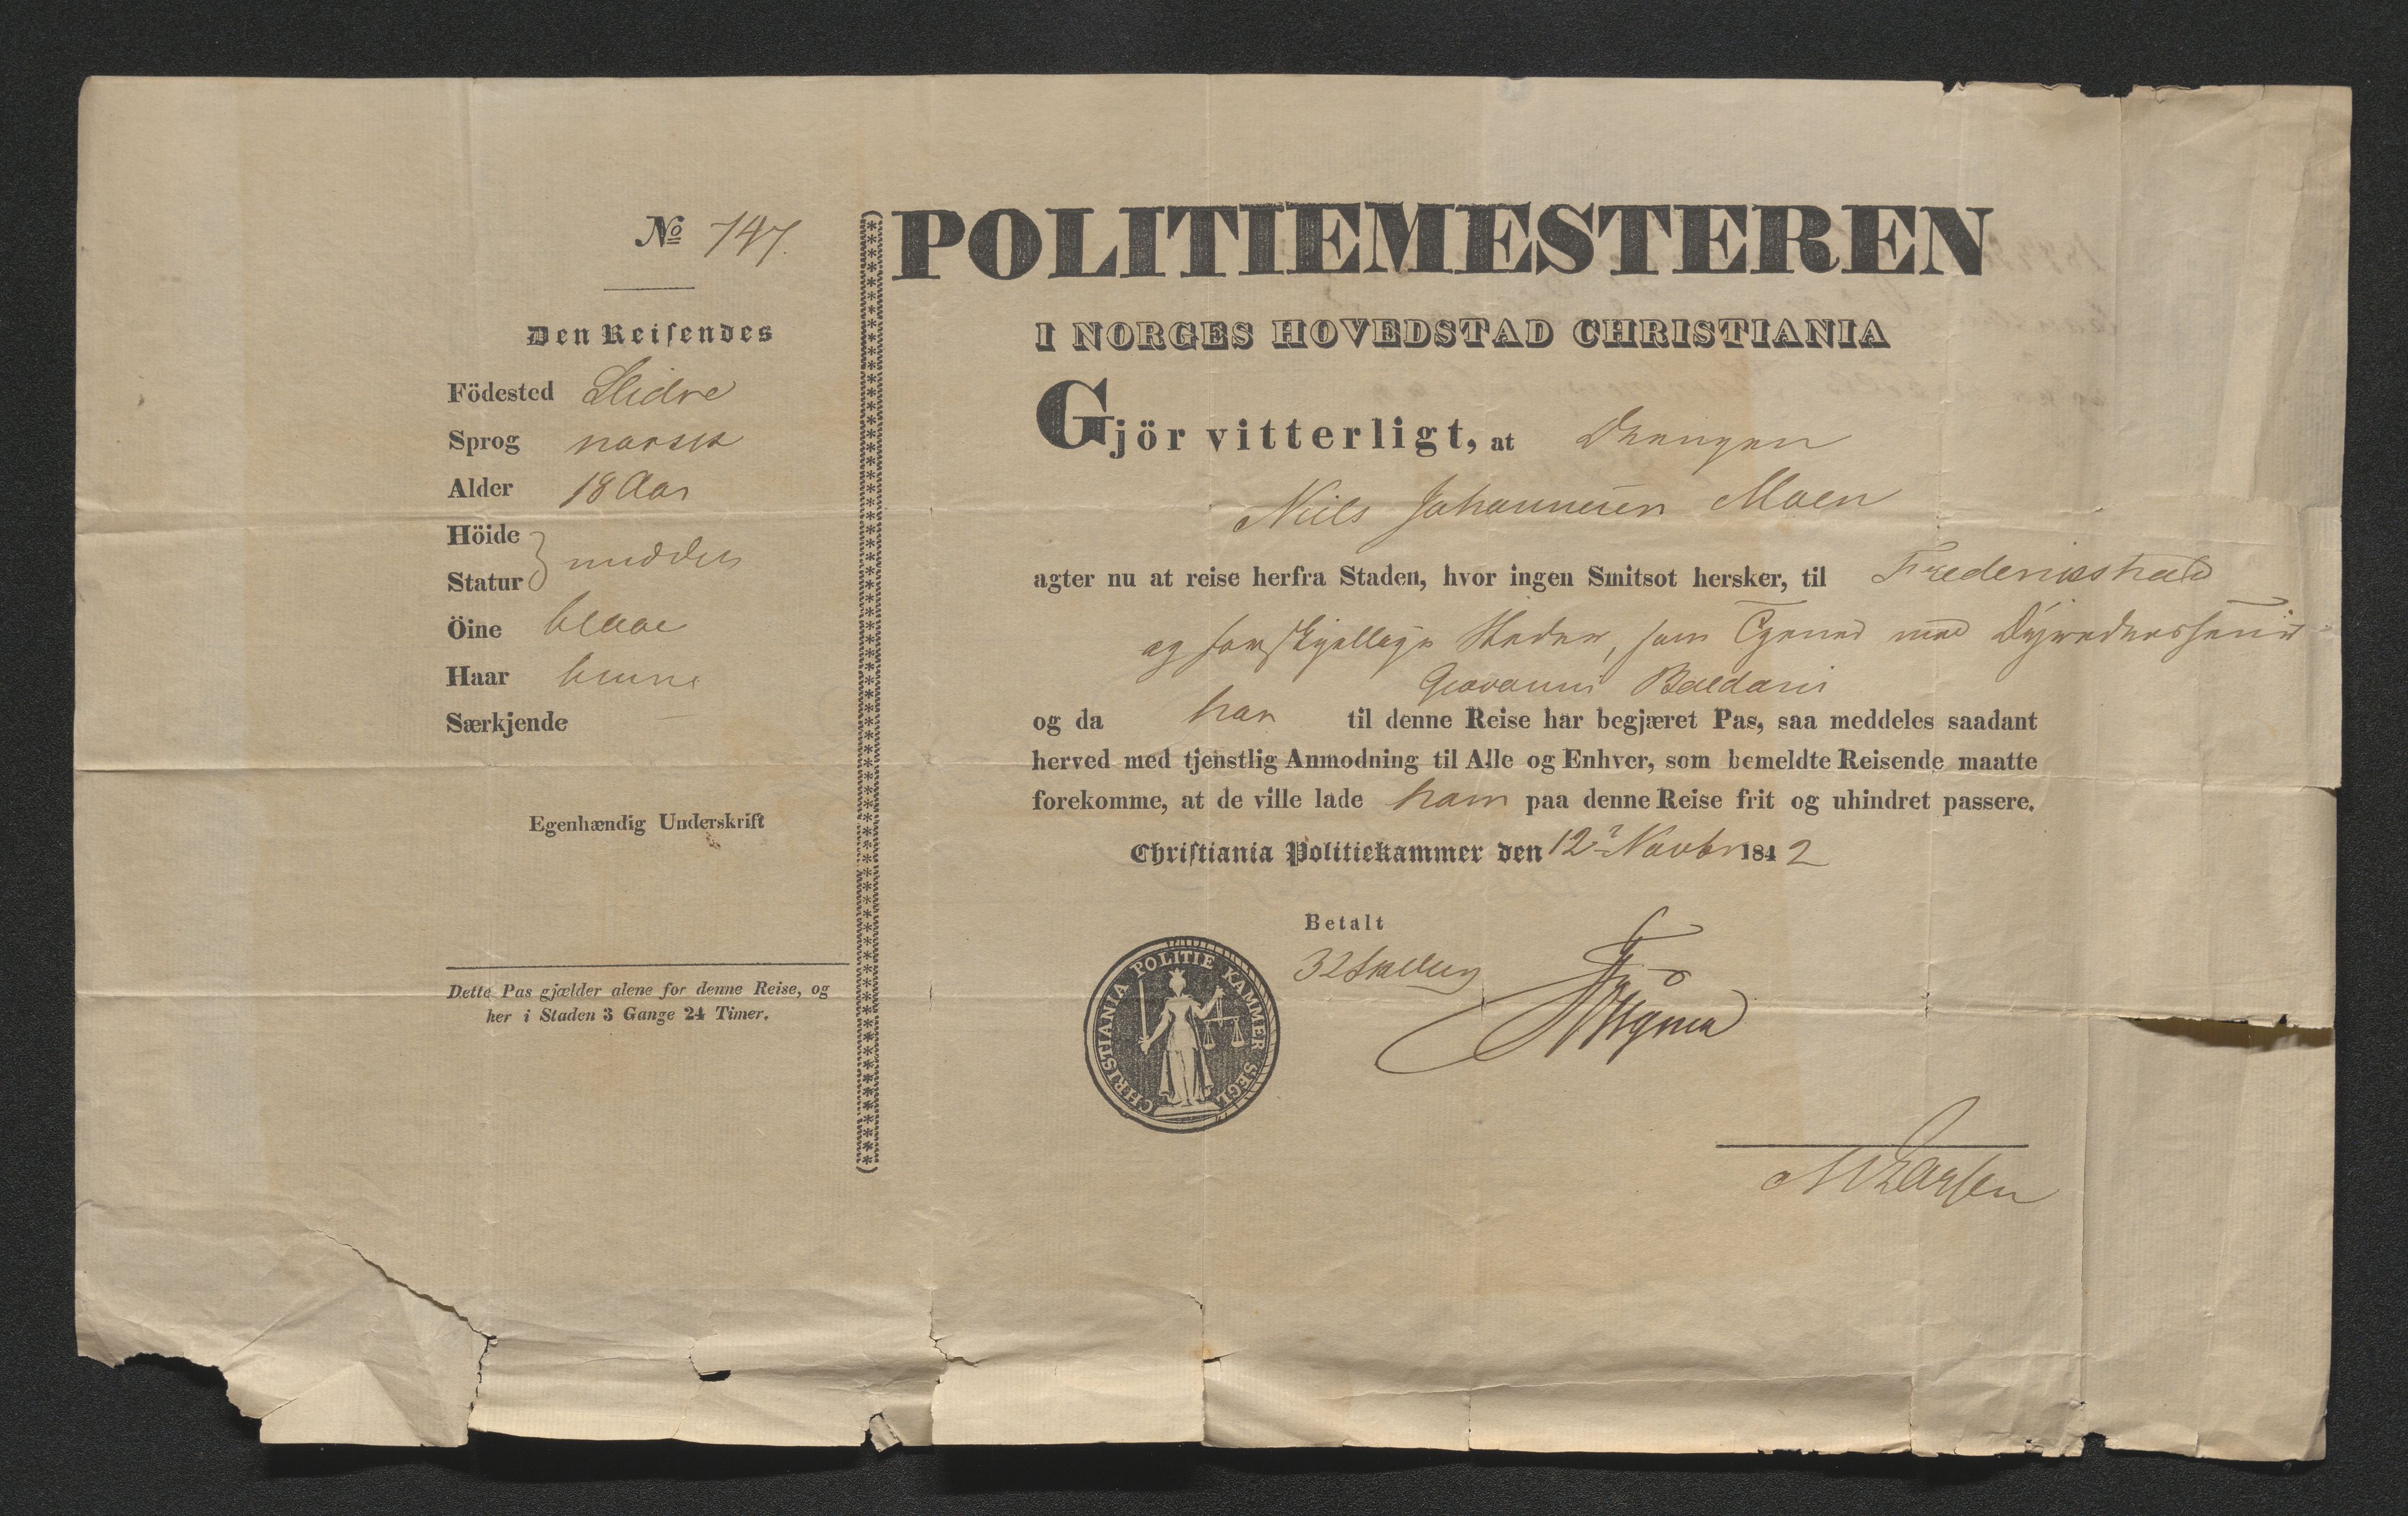 № 747.
Den Reisendes
Födested Slidre
Sprog norsk
Alder 18 Aar
Höide
Statur } middels
Öine blaae
Haar brune
Særkjende —
Egenhændig Underskrift
Dette Pas gjælder alene for denne Reise, og
her i Staden 3 Gange 24 Timer.
POLITIEMESTEREN
I NORGES HOVEDSTAD CHRISTIANIA
Gjör vitterligt, at Drengen
Niels Johannesen Moen
agter nu at reise herfra Staden, hvor ingen Smitsot hersker, til Frederikshald
og forskjellige Steder, som Tjener med
Giovanni Baldari
og da han til denne Reise har begjæret Pas, saa meddeles saadant
herved med tjenstlig Anmodning til Alle og Enhver, som bemeldte Reisende maatte
forekomme, at de ville lade ham paa denne Reise frit og uhindret passere.
Christiania Politiekammer den 12 Novbr 1842
Betalt
32 Skilling
CHRISTIANIA POLITIE KAMMER SEGL
Larsen